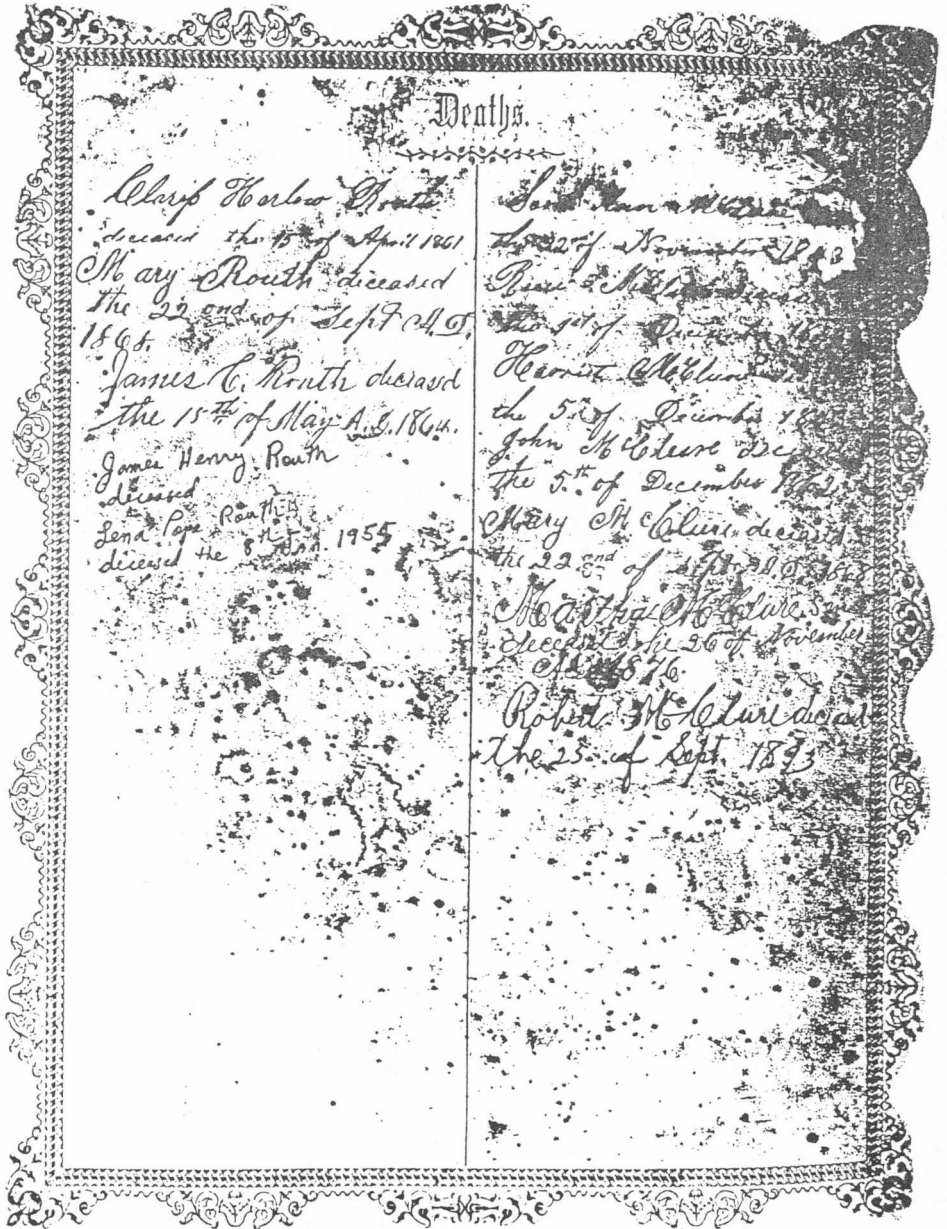 Deaths.
Clarif Harlow Routh
deceased the 15 of April 1861
Mary Routh deceased
the 22 ond of Sept A.D.
1868.
James C. Routh deceased
the 15th of May A.D. 1864.
James Henry Routh
deceased
Lena Pope Routh
deceased the 8th 1955
Ann McClure
the 22nd of November
McClure
the 1st of December
Harriet McClure
the 5th of December
John McClure
the 5th of December 1862
Mary McClure deceased
the 22 ond of Sept A.D. 1868
Martha McClure
deceased the 26 of November
A.D. 1876
Robert McClure deceased
the 25 of Sept. 1893